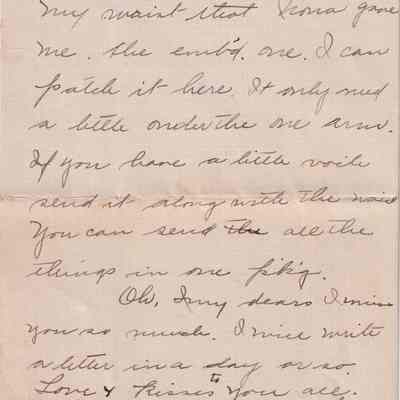 my waist that Leona gave
me. the emb'd. one. I can
patch it here. It only need
a little under the one arm.
If you have a little voile
send it along with the waist
You can send the all the
things in one pk'g.
Oh, I my dears I miss
you so much. I will write
a letter in a day or so.
Love & Kisses to you all.